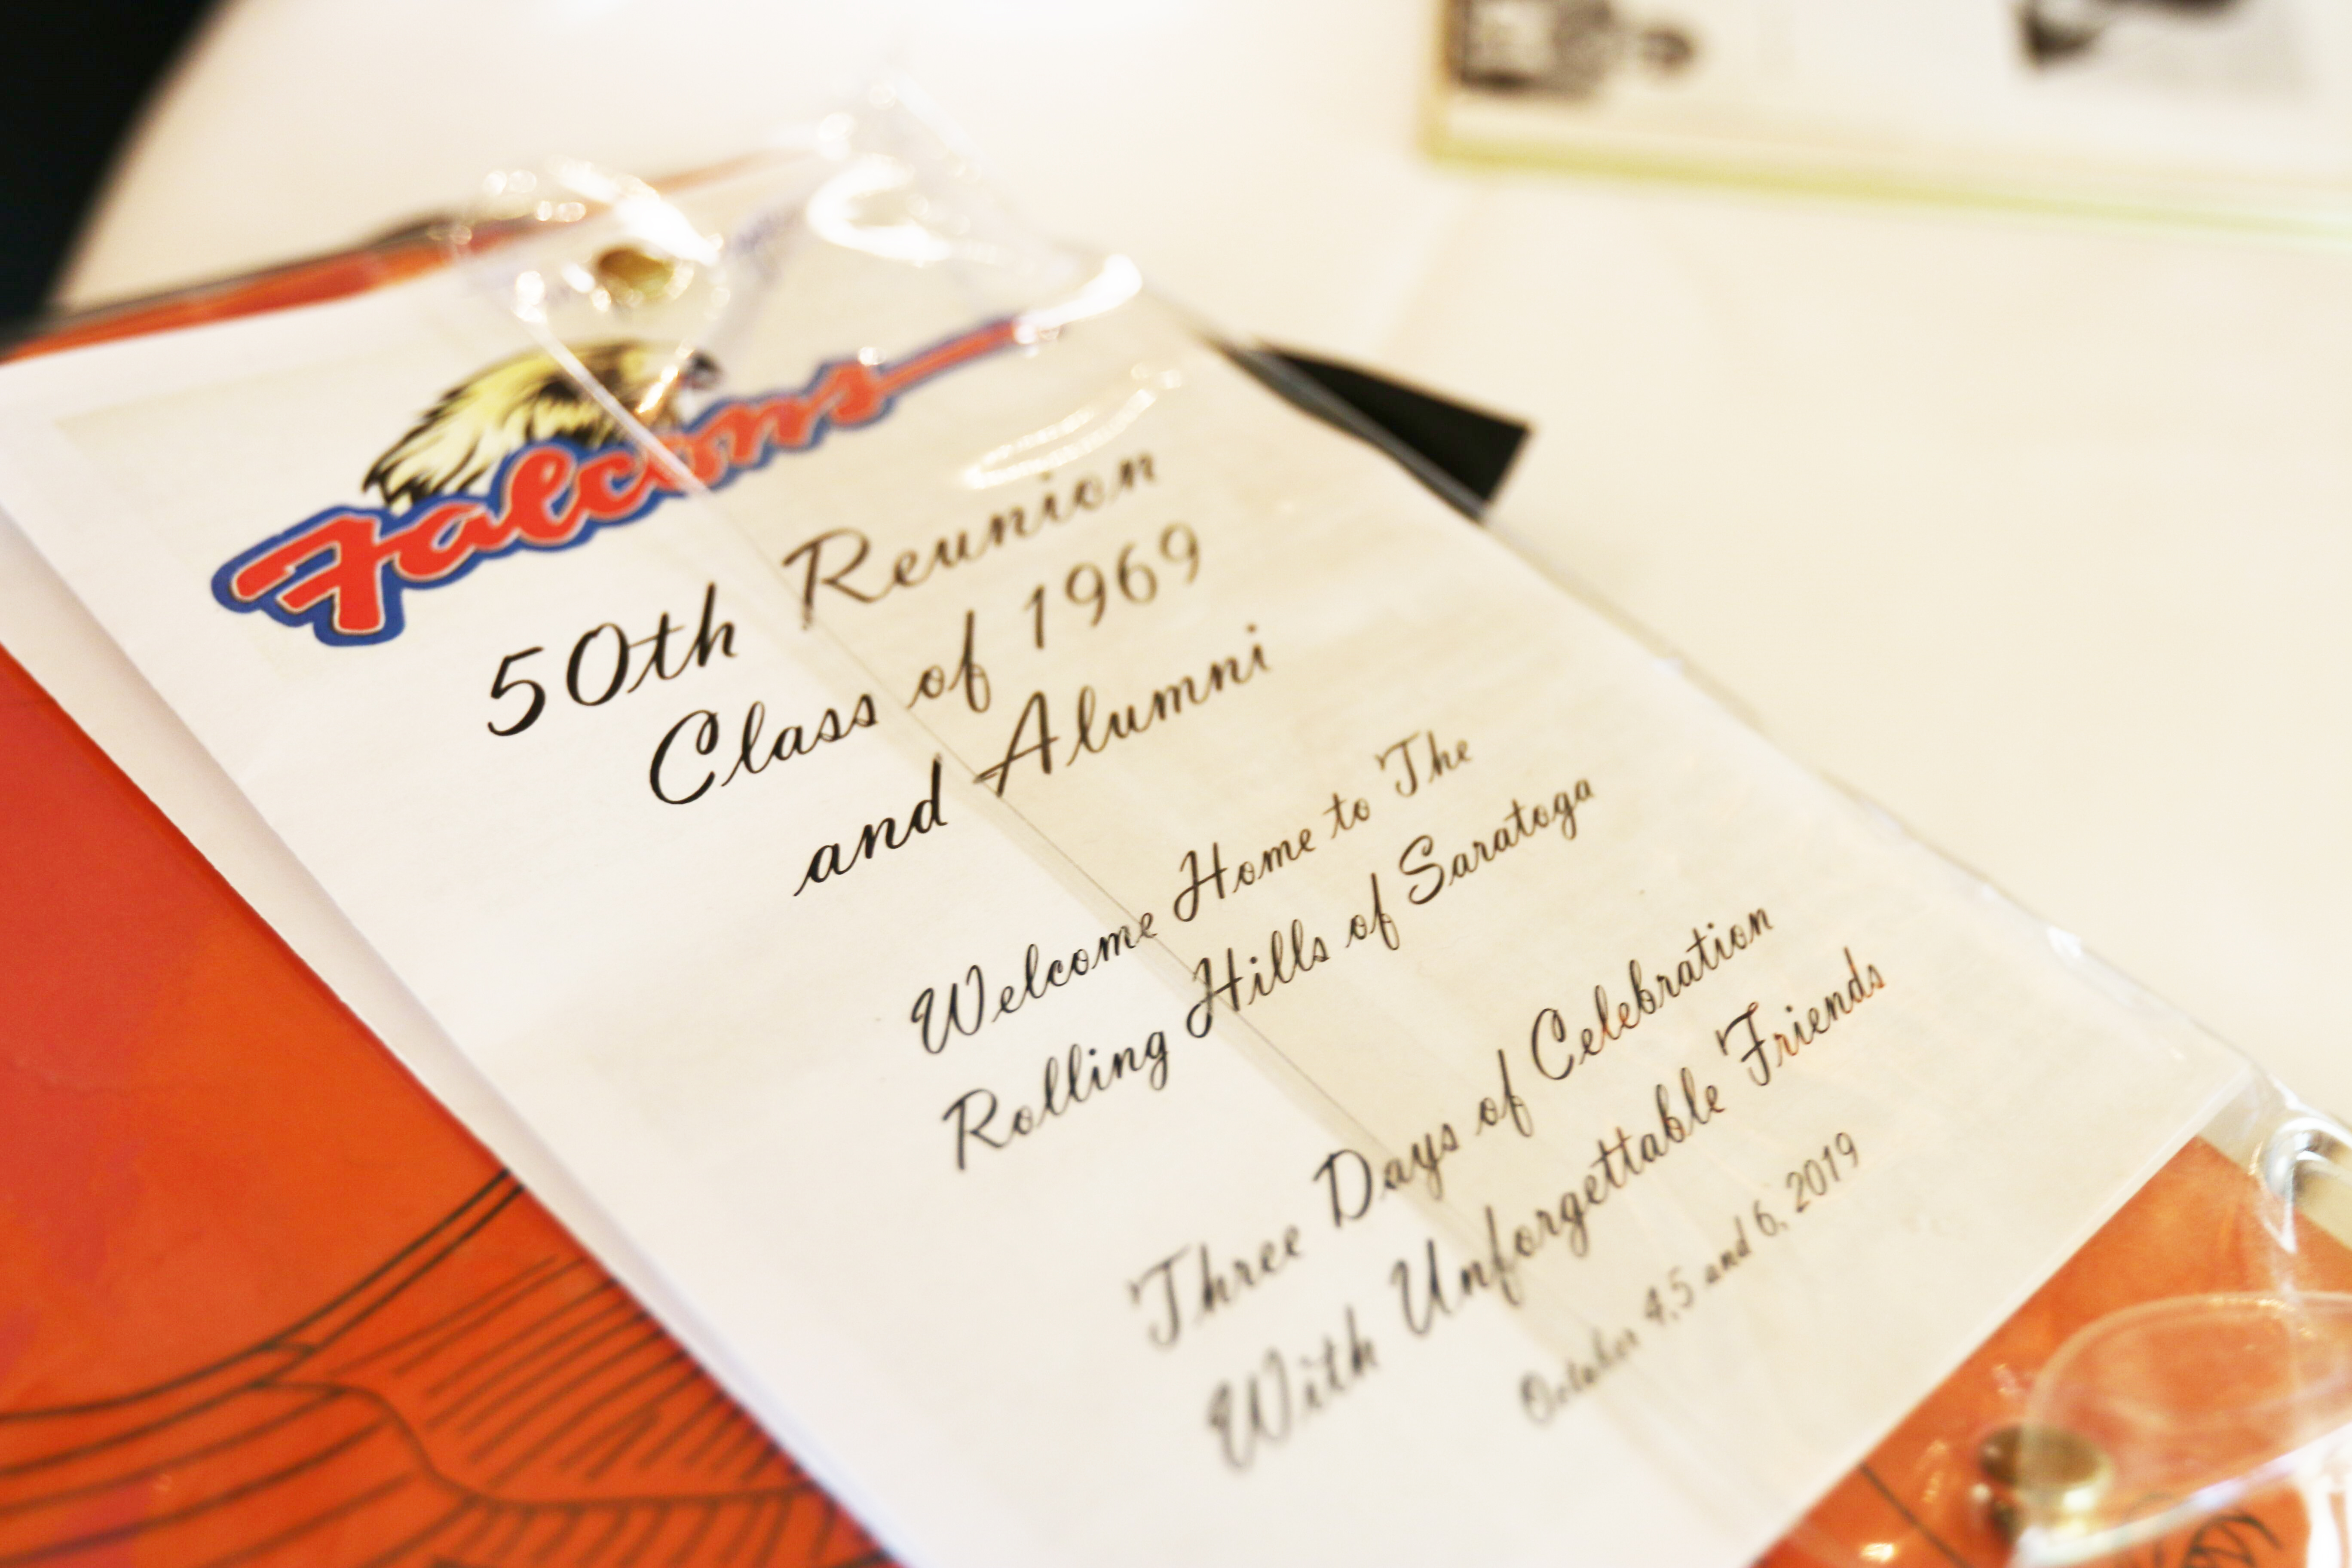 Falcons
50th Reunion
Class of 1969
and Alumni
Welcome Home to The
Rolling Hills of Saratoga
Three Days of Celebration
With Unforgettable Friends
October 4,5 and 6, 2019